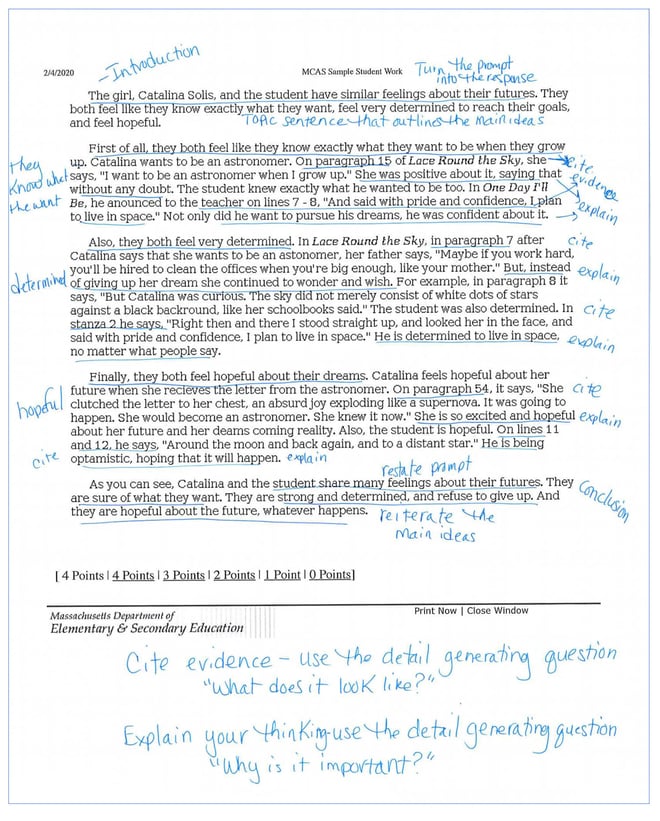 -Introduction
2/4/2020
MCAS Sample Student Work
Turn the prompt
into the response
The girl, Catalina Solis, and the student have similar feelings about their futures. They
both feel like they know exactly what they want, feel very determined to reach their goals,
and feel hopeful.
TOPIC sentence that outlines the main ideas
First of all, they both feel like they know exactly what they want to be when they grow
up. Catalina wants to be an astronomer. On paragraph 15 of Lace Round the Sky, she
cite
they
know what
the want
says, "I want to be an astronomer when I grow up." She was positive about it, saying that
evidence
without any doubt. The student knew exactly what he wanted to be too. In One Day I'll
Be, he anounced to the teacher on lines 7 - 8, "And said with pride and confidence, I plan
explain
to live in space." Not only did he want to pursue his dreams, he was confident about it.
Also, they both feel very determined. In Lace Round the Sky, in paragraph 7 after
cite
Catalina says that she wants to be an astonomer, her father says, "Maybe if you work hard,
you'll be hired to clean the offices when you're big enough, like your mother." But, instead
explain
determined
of giving up her dream she continued to wonder and wish. For example, in paragraph 8 it
says, "But Catalina was curious. The sky did not merely consist of white dots of stars
against a black backround, like her schoolbooks said." The student was also determined. In
cite
stanza 2 he says, "Right then and there I stood straight up, and looked her in the face, and
said with pride and confidence, I plan to live in space." He is determined to live in space,
explain
no matter what people say.
Finally, they both feel hopeful about their dreams. Catalina feels hopeful about her
future when she recieves the letter from the astronomer. On paragraph 54, it says, "She
cite
hopeful
clutched the letter to her chest, an absurd joy exploding like a supernova. It was going to
happen. She would become an astronomer. She knew it now." She is so excited and hopeful
explain
about her future and her deams coming reality. Also, the student is hopeful. On lines 11
and 12, he says, "Around the moon and back again, and to a distant star." He is being
cite
optamistic, hoping that it will happen.
explain
restate prompt
As you can see, Catalina and the student share many feelings about their futures. They
Conclusion
are sure of what they want. They are strong and determined, and refuse to give up. And
they are hopeful about the future, whatever happens.
reiterate the
main ideas
[ 4 Points | 4 Points | 3 Points | 2 Points | 1 Point | 0 Points]
Massachusetts Department of
Elementary & Secondary Education
Print Now | Close Window
Cite evidence - use the detail generating question
"What does it look like?"
Explain your thinking-use the detail generating question
"Why is it important?"